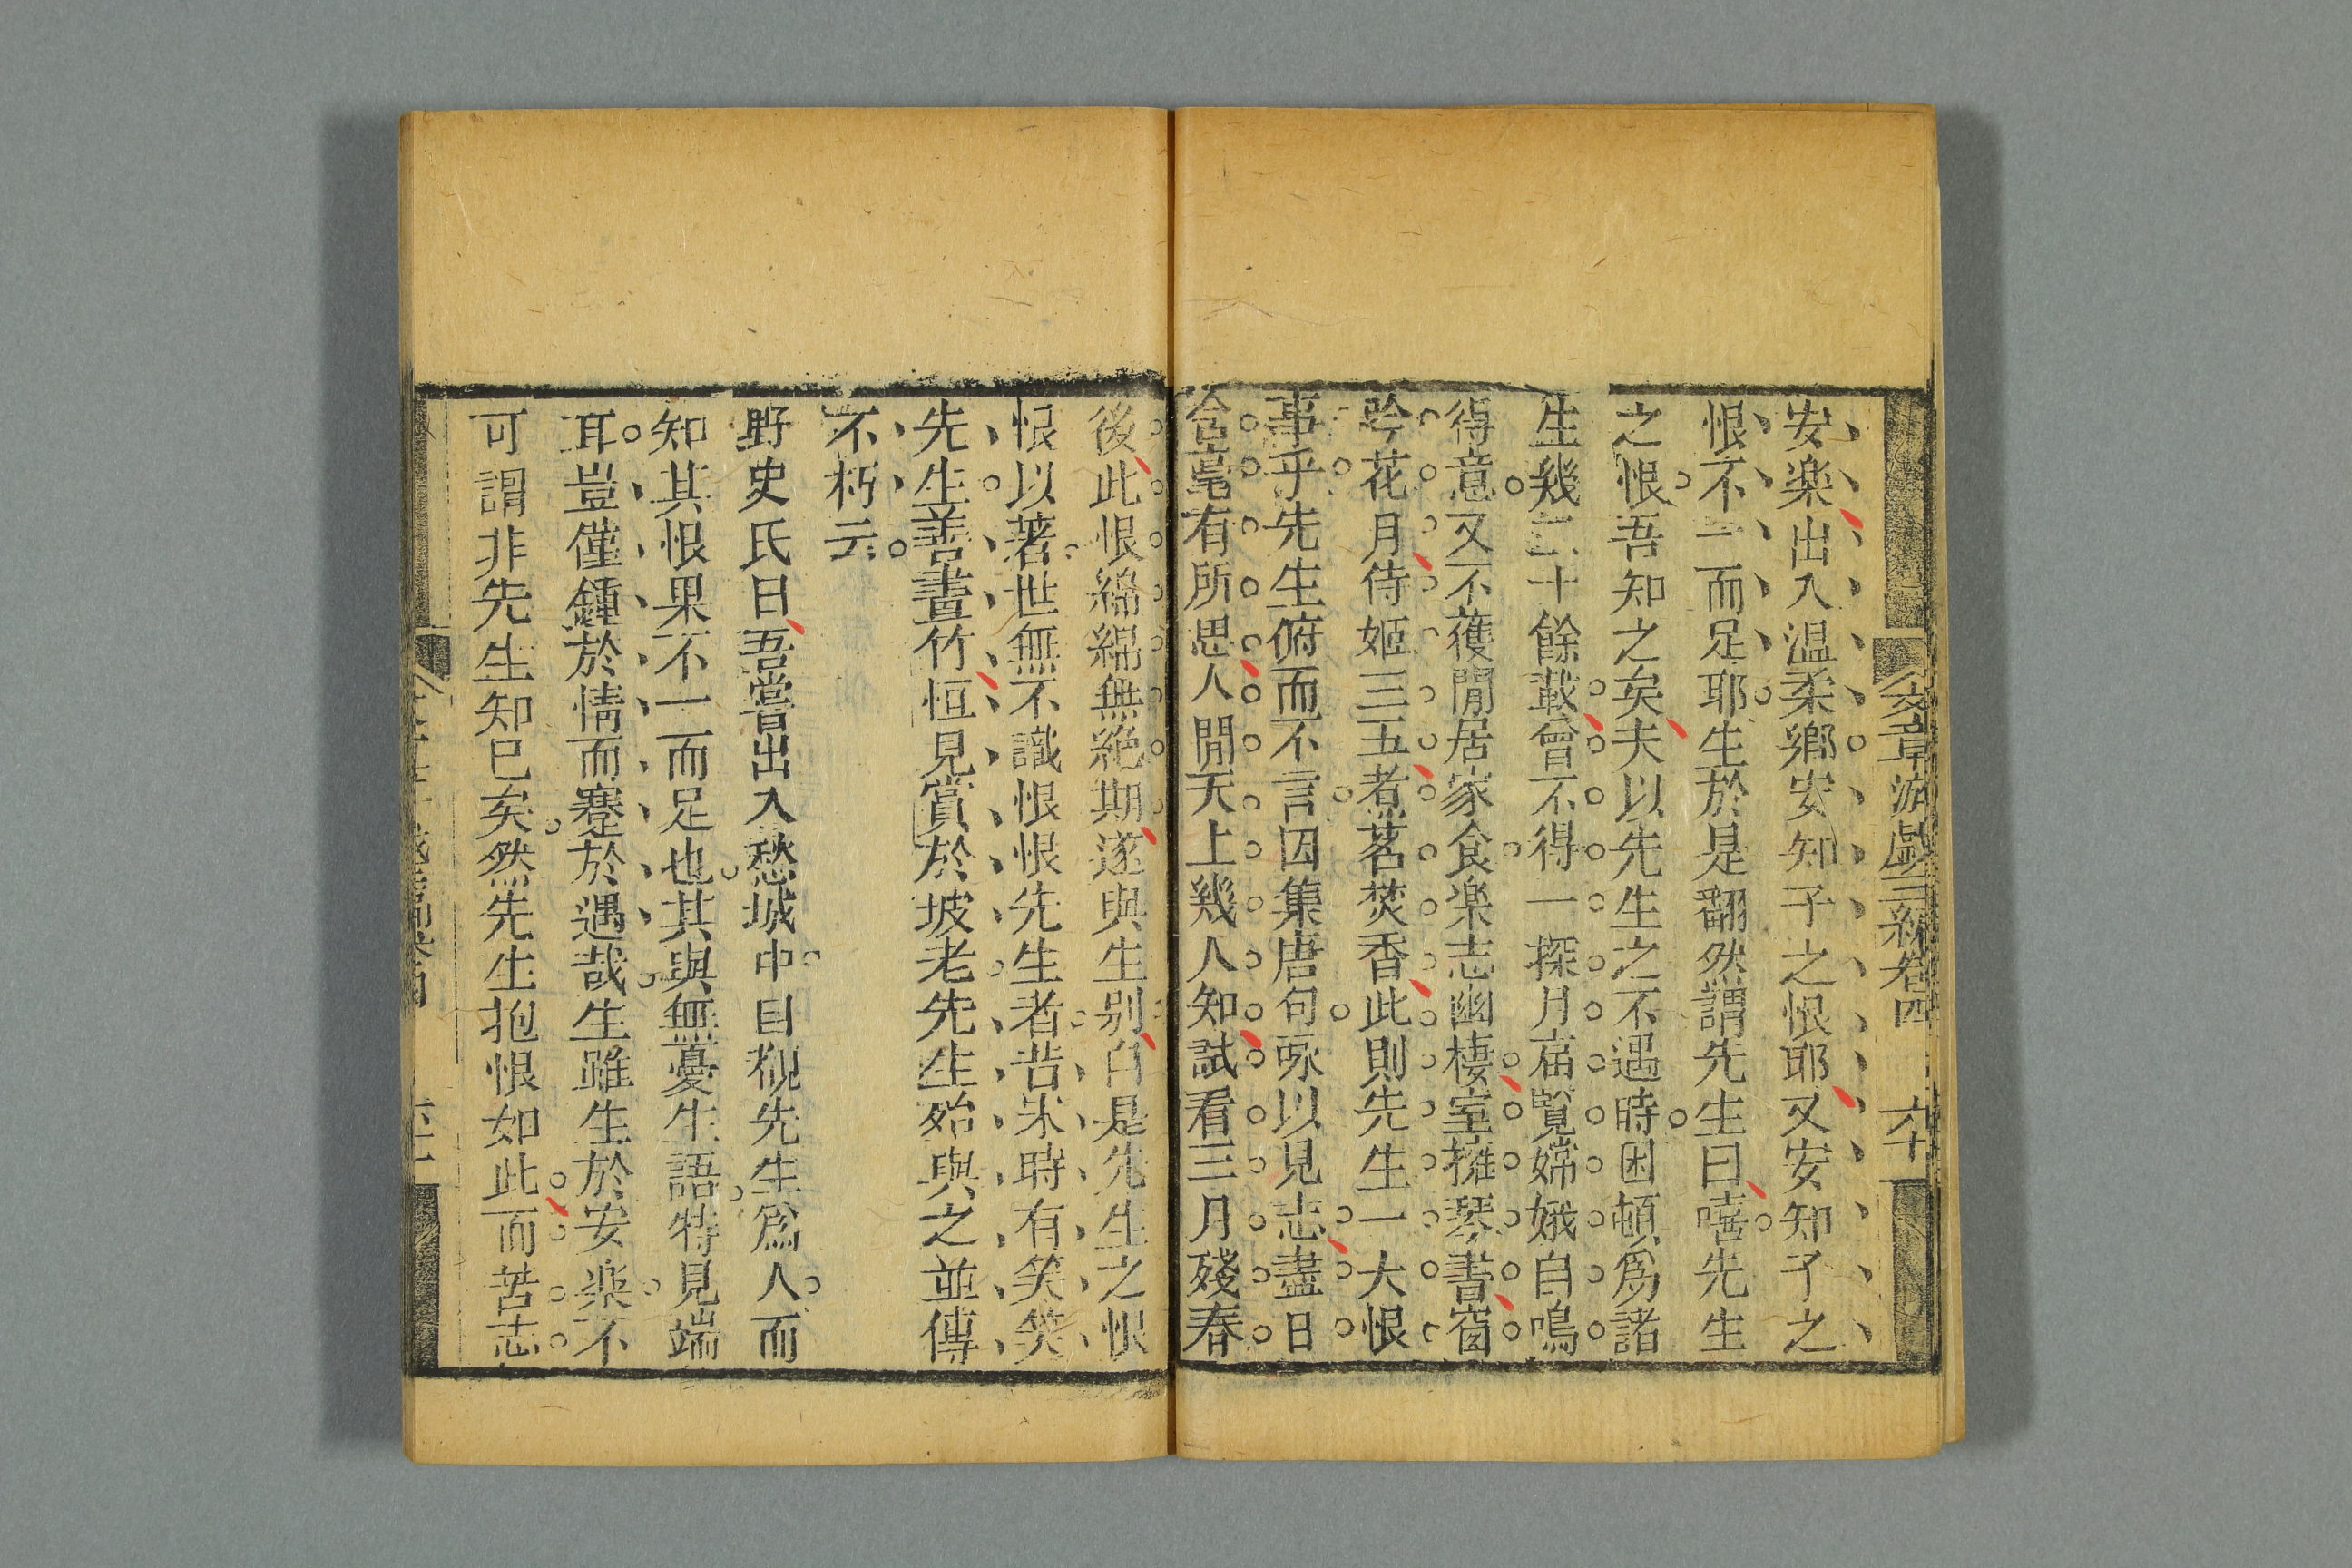 文章游戲三編卷四 六十
安楽出入温柔鄉安知予之恨耶又安知予之
恨不一而足耶生於是翻然謂先生曰嘻先生
之恨吾知之矣夫以先生之不遇時困頓爲諸
生幾二十餘載曾不得一探月窟覧嫦娥自鳴
得意又不獲閒居家食楽志幽棲室擁琴書窗
吟花月侍姬三五煮茗焚香此則先生一大恨
事乎先生俯而不言因集唐句咏以見志盡日
含毫有所思人間天上幾人知試看三月殘春
後此恨綿綿無絶期遂與生别自是先生之恨
恨以著世無不識恨恨先生者昔宋時有笑笑
先生善畫竹恒見賞於坡老先生殆與之並傳
不朽云
野史氏曰吾嘗出入愁城中目覩先生爲人而
知其恨果不一而足也其與無憂生語特見端
耳豈僅鍾於情而蹇於遇哉生雖生於安楽不
可謂非先生知已矣然先生抱恨如此而苦志